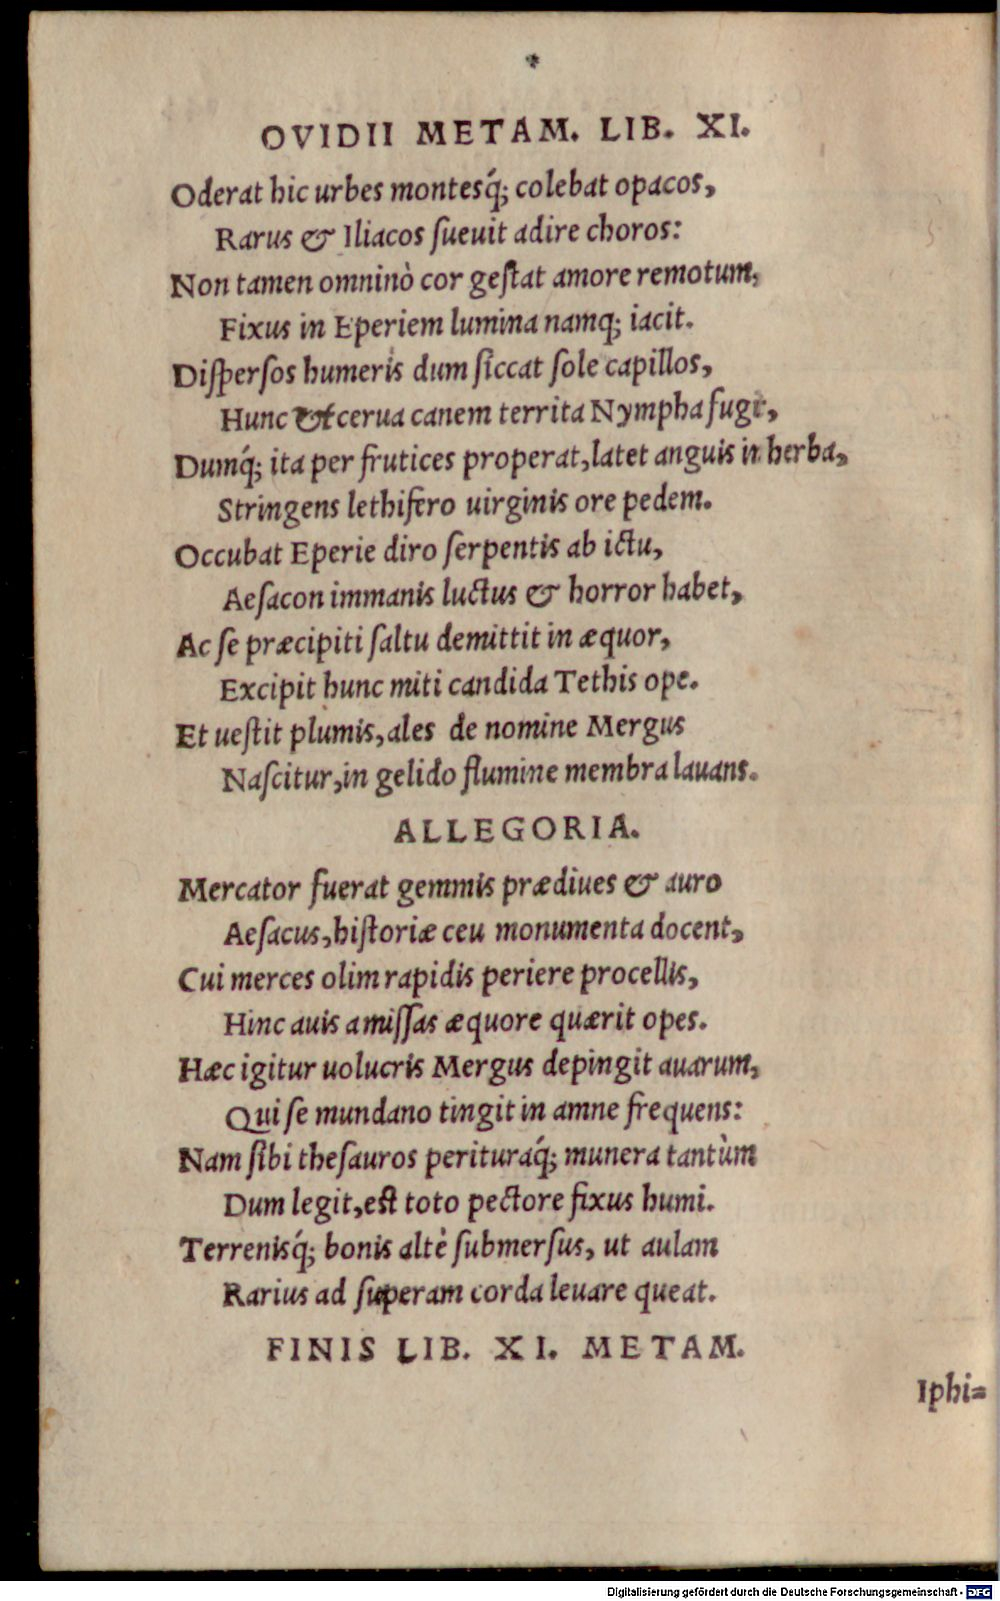 *
OVIDII METAM. LIB. XI.
Oderat hic urbes montesq́; colebat opacos,
Rarus & Iliacos sueuit adire choros:
Non tamen omninò cor gestat amore remotum,
Fixus in Eperiem lumina namq; iacit.
Dispersos humeris dum siccat sole capillos,
Hunc cerua canem territa Nympha fugit,
Dumq́; ita per frutices properat, latet anguis in herba,
Stringens lethifero uirginis ore pedem.
Occubat Eperie diro serpentis ab ictu,
Aesacon immanis luctus & horror habet,
Ac se præcipiti saltu demittit in æquor,
Excipit hunc miti candida Tethis ope.
Et uestit plumis, ales de nomine Mergus
Nascitur, in gelido flumine membra lauans.
ALLEGORIA.
Mercator fuerat gemmis prædiues & auro
Aesacus, historiæ ceu monumenta docent,
Cui merces olim rapidis periere procellis,
Hinc auis amissas æquore quærit opes.
Hæc igitur uolucris Mergus depingit auarum,
Qui se mundano tingit in amne frequens:
Nam sibi thesauros perituraq́; munera tantùm
Dum legit, est toto pectore fixus humi.
Terrenisq́; bonis altè submersus, ut aulam
Rarius ad superam corda leuare queat.
FINIS LIB. XI. METAM.
Iphi=
Digitalisierung gefördert durch die Deutsche Forschungsgemeinschaft - DFG